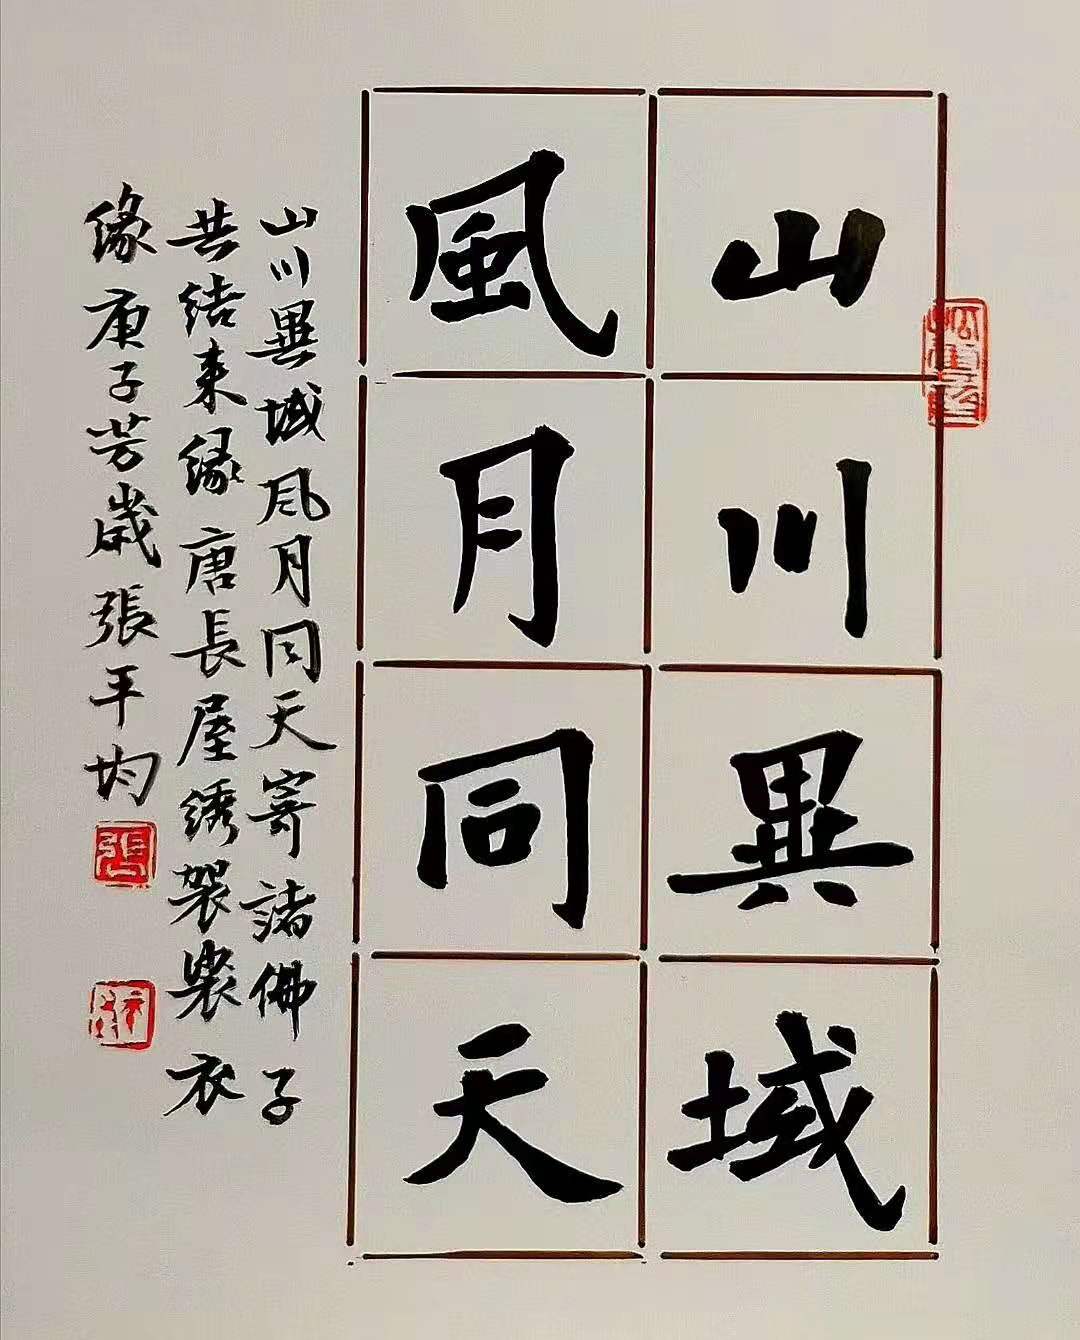 山川異域
風月同天
山川異域風月同天寄諸佛子
共结来缘唐長屋绣袈裟衣
缘庚子芳歲張平均
張